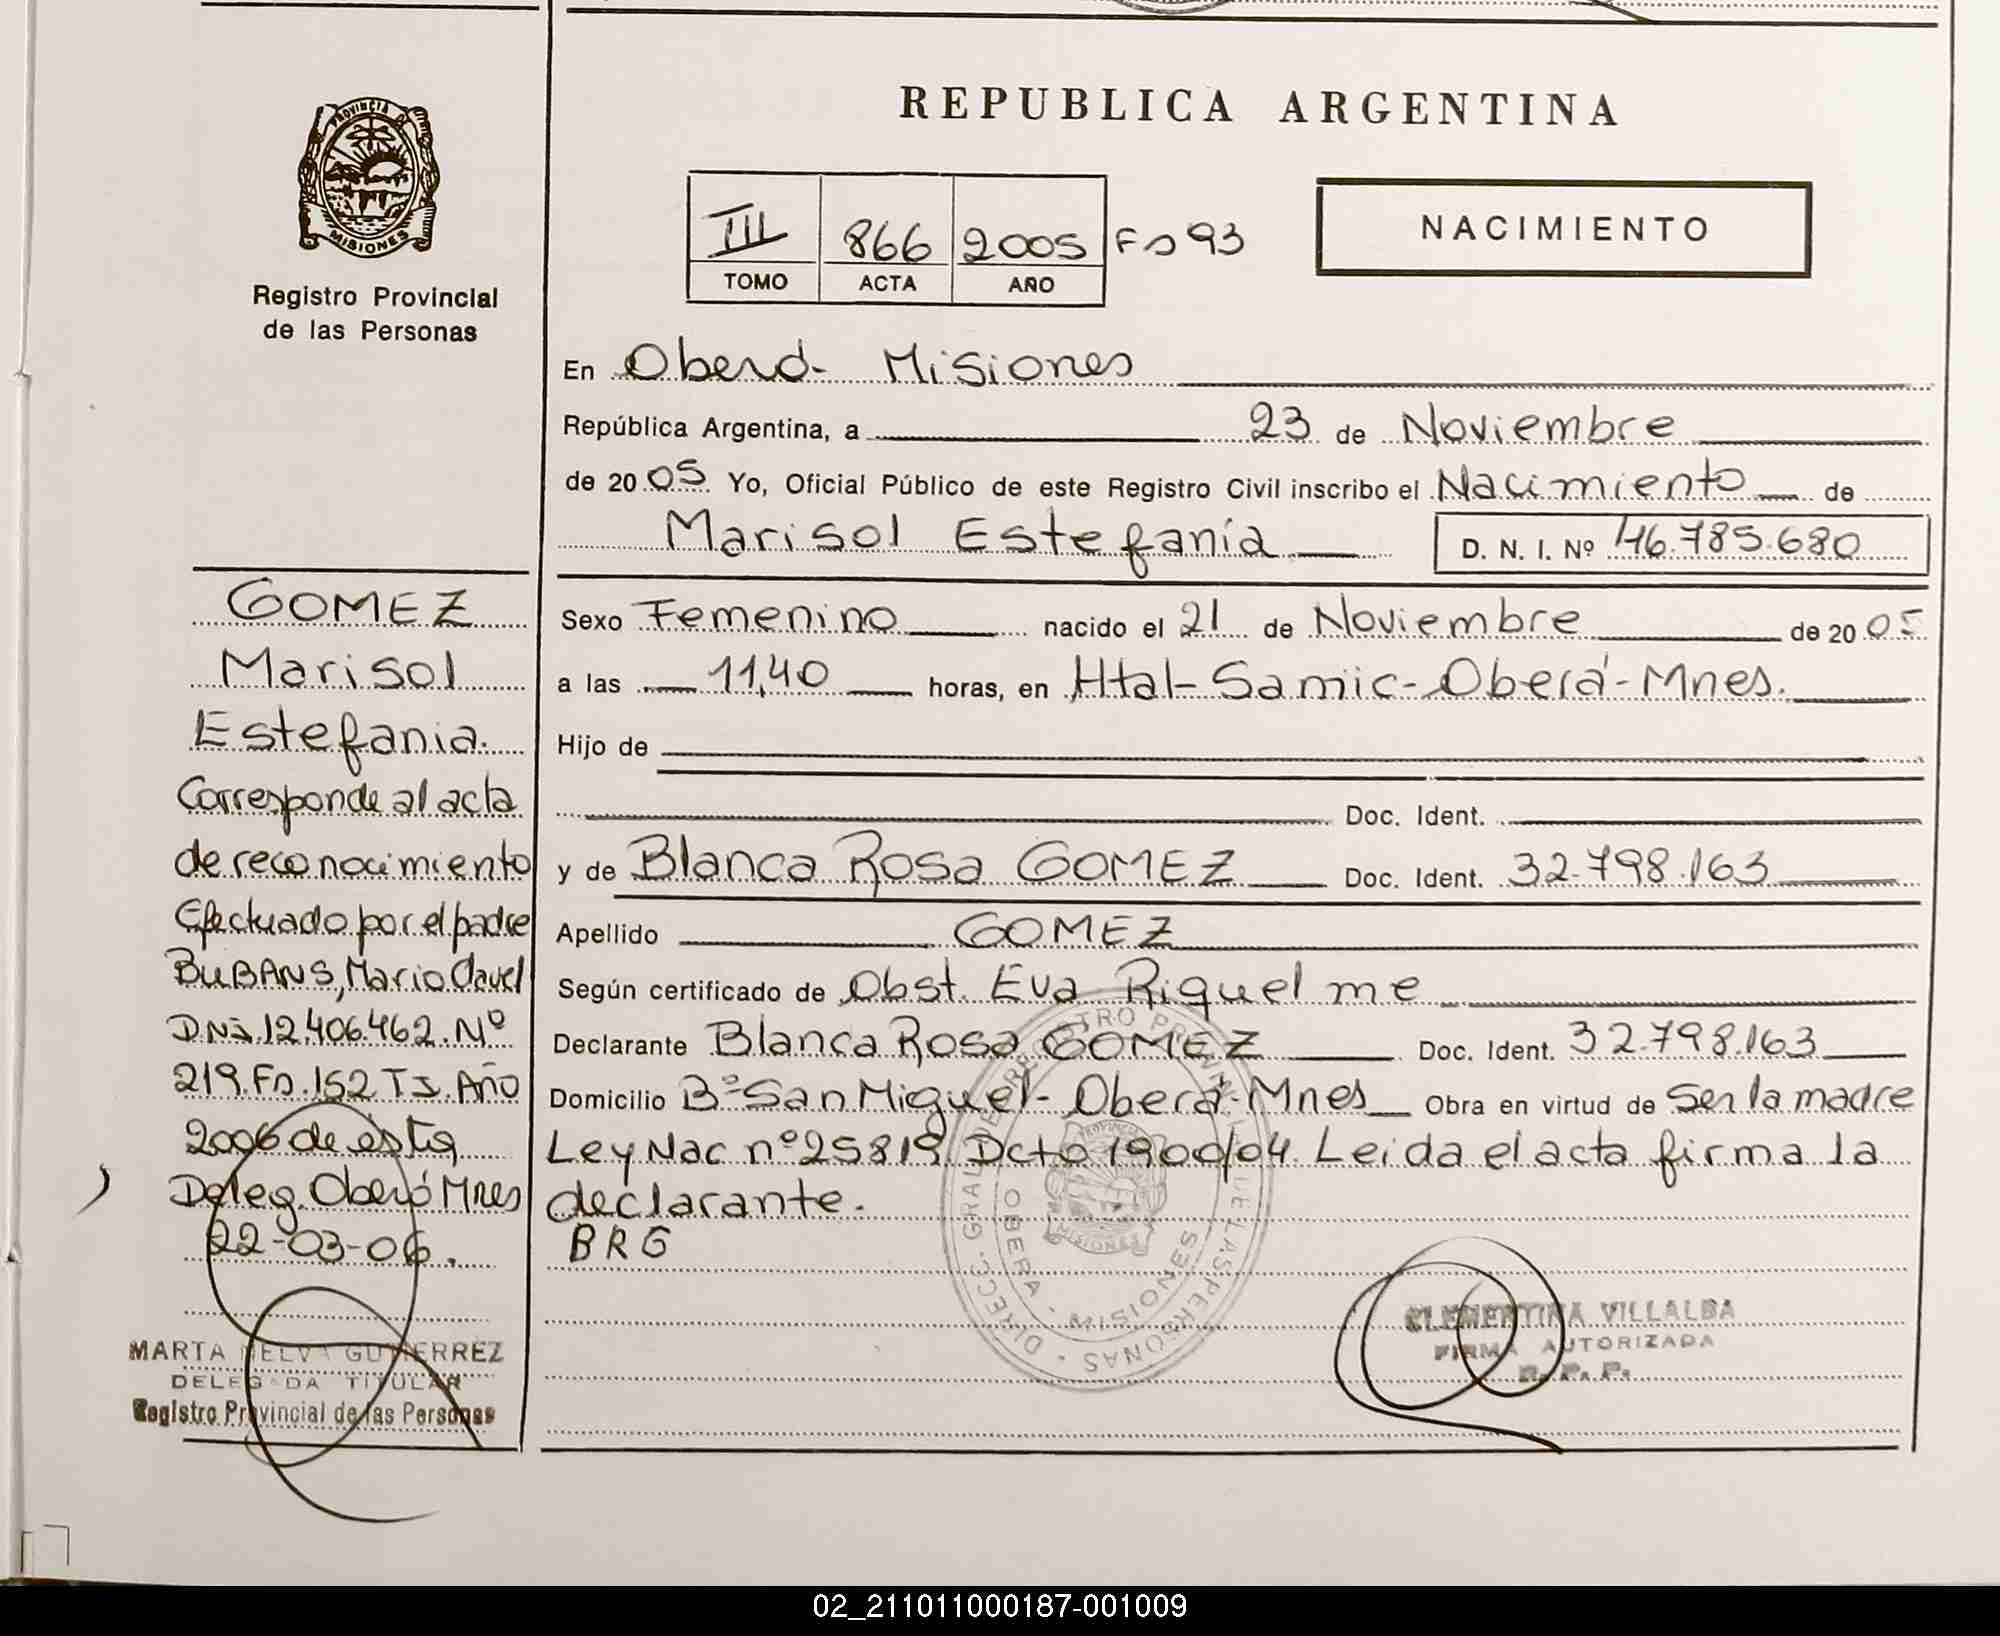 PROVINCIA DE
MISIONES
Registro Provincial
de las Personas
REPUBLICA ARGENTINA
III 866 2005 Fº 93
TOMO ACTA AÑO
NACIMIENTO
En Oberá - Misiones
República Argentina, a 23 de Noviembre
de 2005 Yo, Oficial Público de este Registro Civil inscribo el Nacimiento de
Marisol Estefanía D. N. I. Nº 46.785.680
Sexo Femenino nacido el 21 de Noviembre de 2005
a las 11,40 horas, en Htal - Samic - Oberá - Mnes.
Hijo de
Doc. Ident.
y de Blanca Rosa GOMEZ Doc. Ident. 32.798.163
Apellido GOMEZ
Según certificado de Obst. Eva Riquelme
Declarante Blanca Rosa GOMEZ Doc. Ident. 32.798.163
Domicilio Bº San Miguel - Oberá - Mnes Obra en virtud de Ser la madre
Ley Nac nº 25819 Dcto 1900/04. Leida el acta firma la
declarante.
BRG
DIRECC. GRAL. DE REGISTRO PROVINCIAL DE LAS PERSONAS
OBERA - MISIONES
CLEMENTINA VILLALBA
FIRMA AUTORIZADA
R. P. P.
GOMEZ
Marisol
Estefania.
Corresponde al acta
de reconocimiento
Efectuado por el padre
BUBANS, Mario Clavel
DNI. 12.406.462. Nº
219. Fº. 152 T I. Año
2006 de esta
Deleg. Oberá Mnes
22-03-06.
MARTA NELVA GUTIERREZ
DELEGADA TITULAR
Registro Provincial de las Personas
02_211011000187-001009